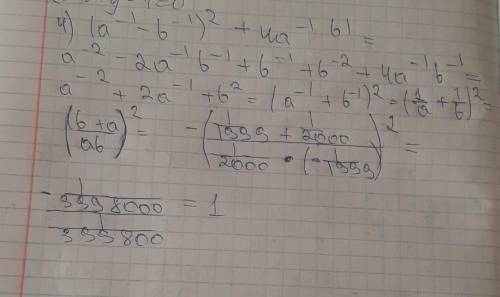 4) (a⁻¹ - b⁻¹)² + 4a⁻¹ b¹ =
a⁻² - 2a⁻¹ b⁻¹ + b⁻¹ + b⁻² + 4a⁻¹ b⁻¹ =
a⁻² + 2a⁻¹ + b² = (a⁻¹ + b⁻¹)² = (1/a + 1/b)² =
((b + a)/(ab))² = - ((1/1999 + 1/2000)/(1/2000 · (-1/1999)))² =
- (1/3998000)/(1/399800) = 1